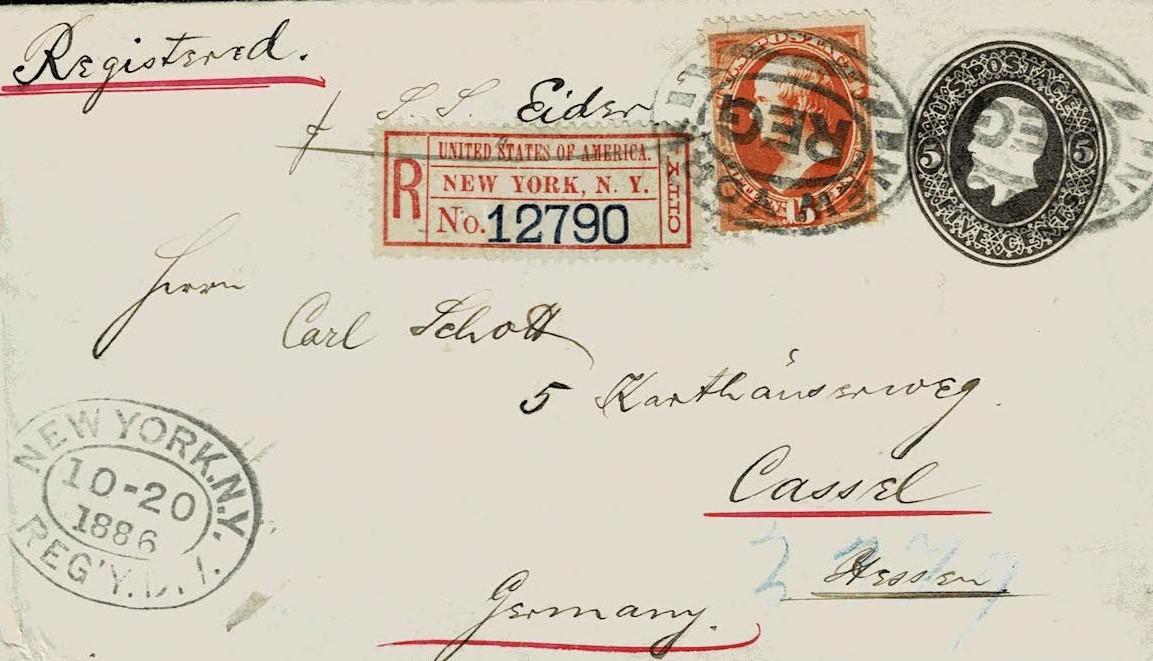 Registered.
S. S. Eider
R
UNITED STATES OF AMERICA.
NEW YORK, N. Y.
No. 12790
REG
U.S. POSTAGE
5 5
FIVE CENTS
Herrn
Carl Schott
5 Karthäuserweg.
Cassel
Hessen
Germany.
NEW YORK. N.Y.
10-20
1886
REG'Y.